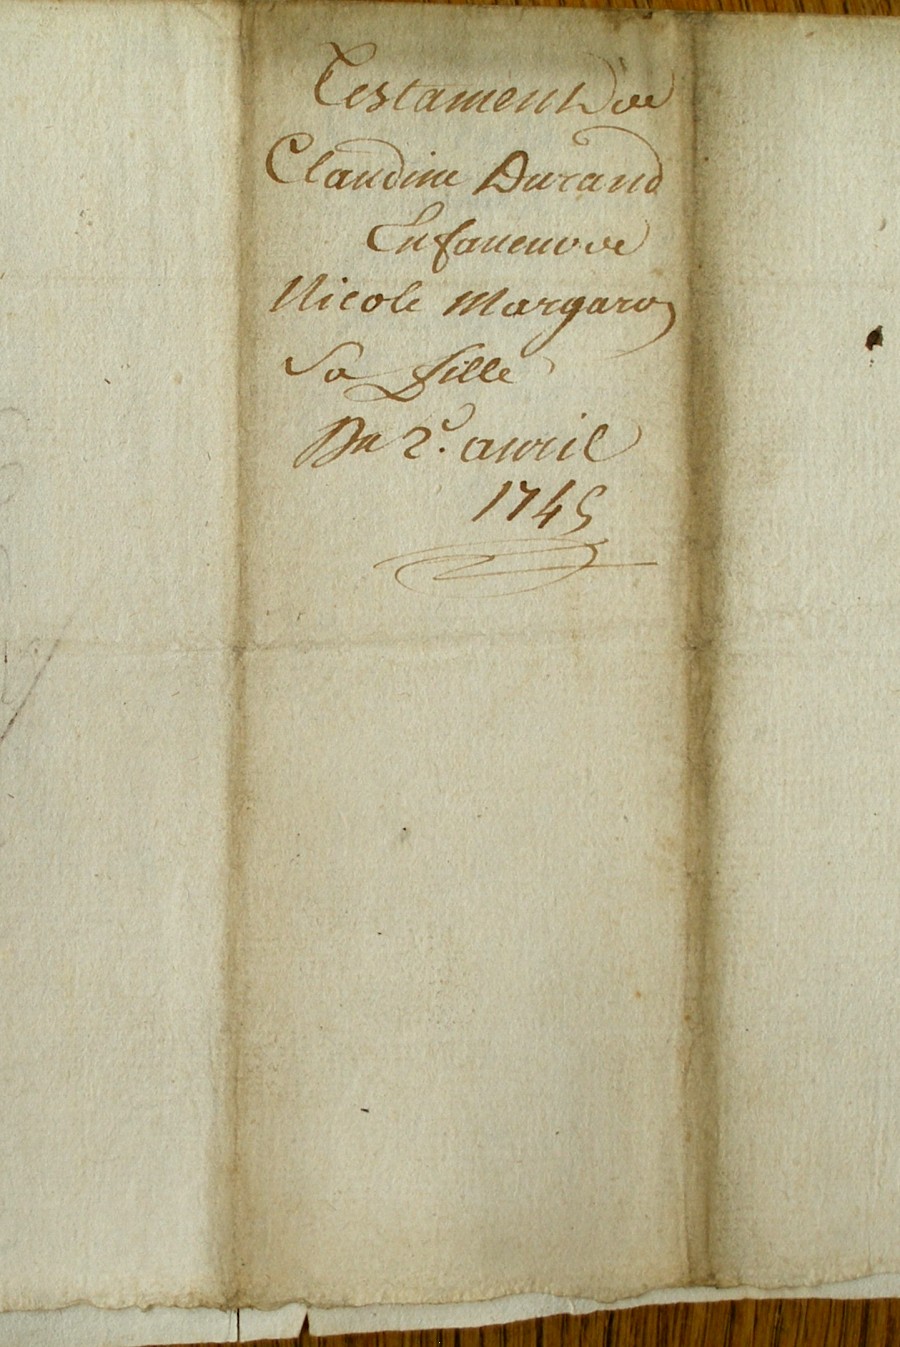 Testament de
Claudine Durand
En faueur de
Nicole Margaron
Sa fille
Du 2e. auril
1745